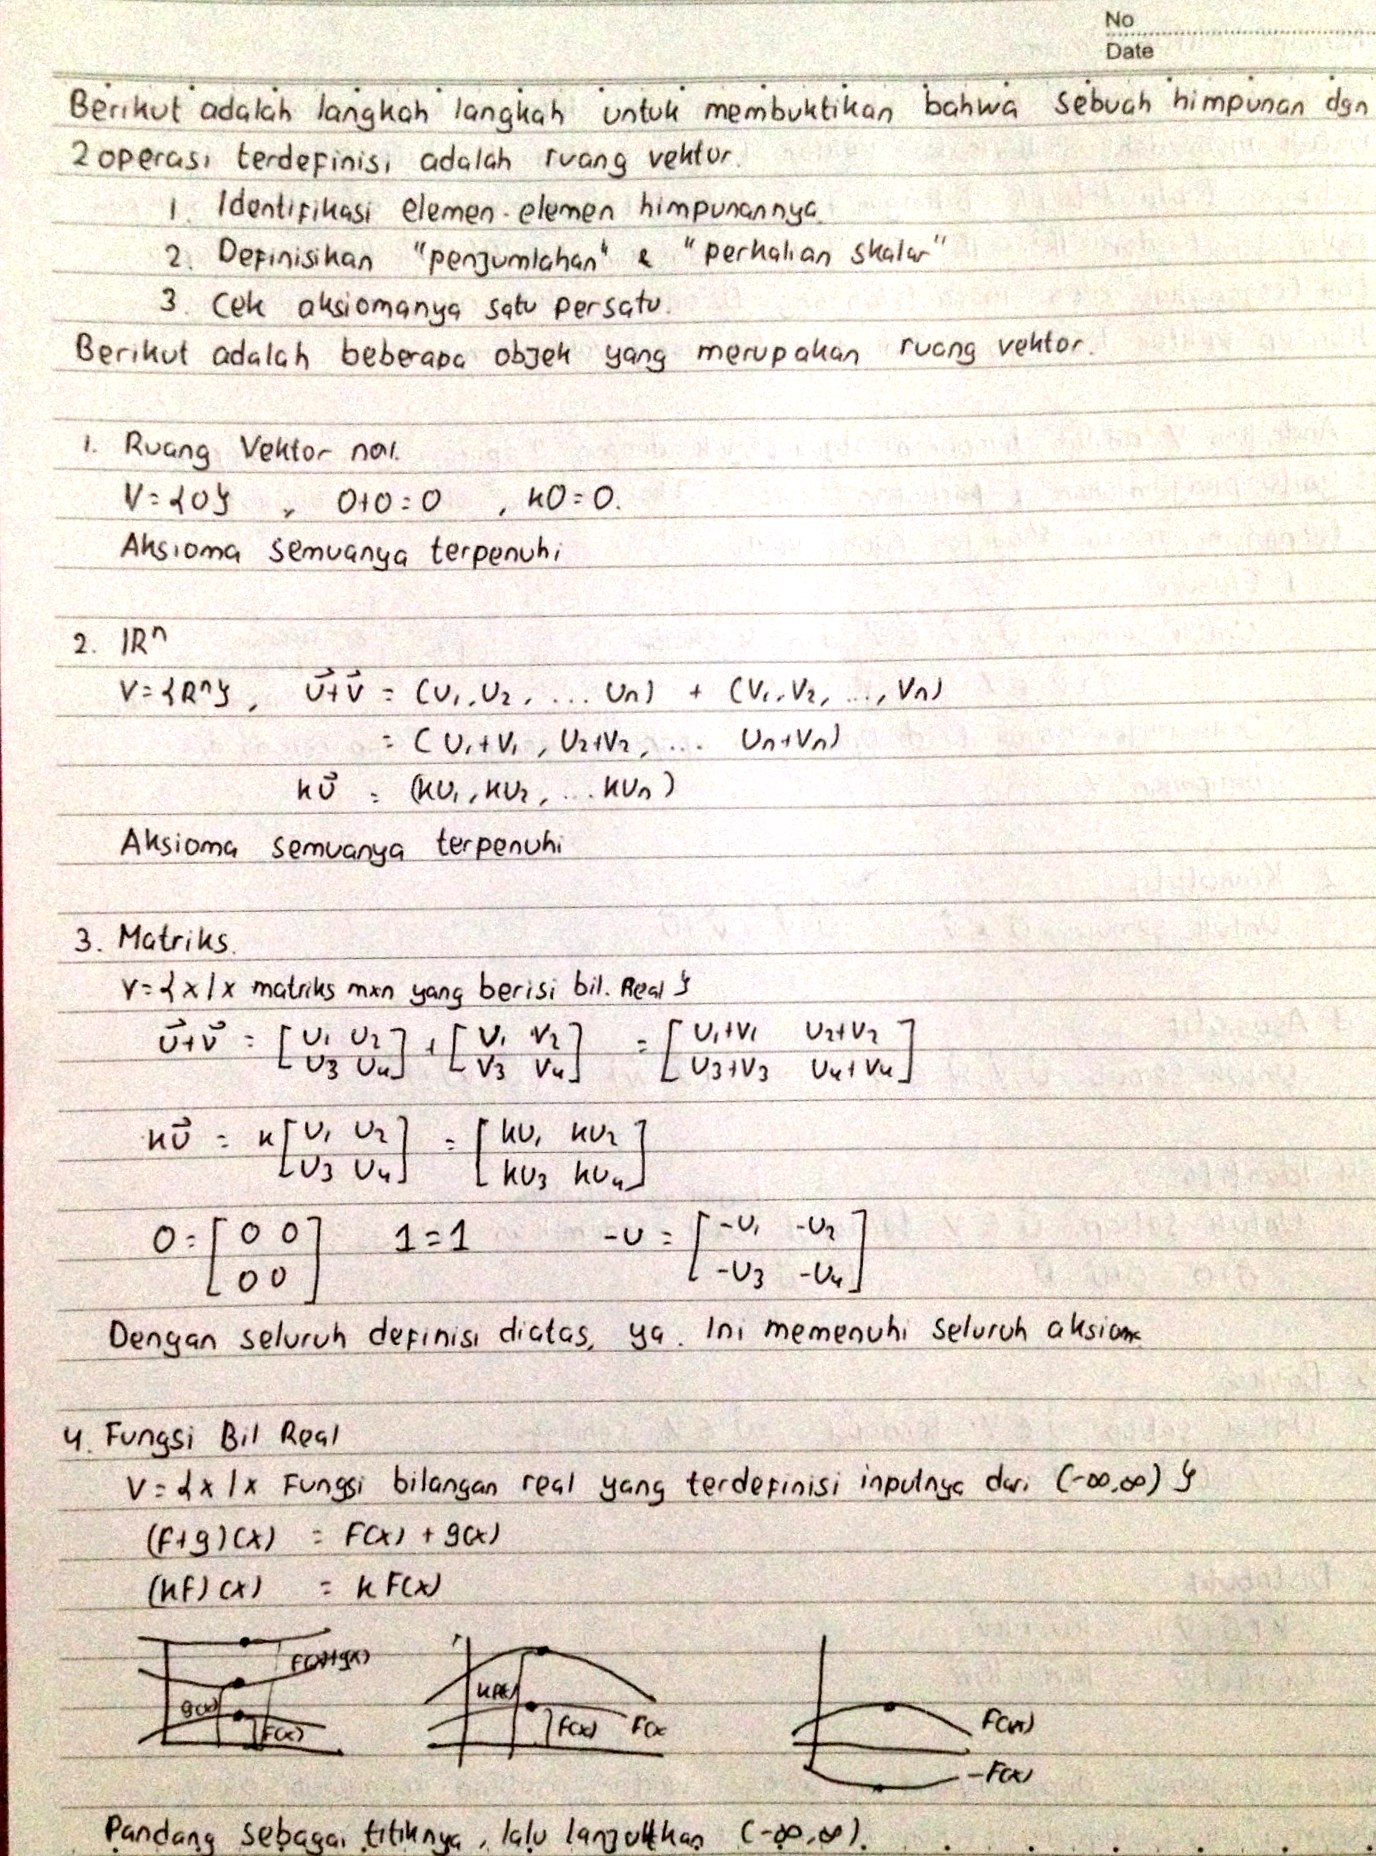 No
Date
Berikut adalah langkah langkah untuk membuktikan bahwa sebuah himpunan dgn
2 operasi terdefinisi adalah ruang vektor.
1. Identifikasi elemen-elemen himpunannya.
2. Definisikan "penjumlahan" & "perkalian skalar"
3. Cek aksiomanya satu persatu.
Berikut adalah beberapa objek yang merupakan ruang vektor.
1. Ruang Vektor nol.
V = {0} , 0+0=0 , k0=0.
Aksioma semuanya terpenuhi
2. ℝⁿ
V = {Rⁿ}, u⃗+v⃗ = (u₁, u₂, ... uₙ) + (v₁, v₂, ..., vₙ)
= (u₁+v₁, u₂+v₂, ... uₙ+vₙ)
ku⃗ = (ku₁, ku₂, ... kuₙ)
Aksioma semuanya terpenuhi
3. Matriks.
V = {x|x matriks mxn yang berisi bil. Real}
u⃗+v⃗ = [u₁ u₂ u₃ u₄] + [v₁ v₂ v₃ v₄] = [u₁+v₁ u₂+v₂ u₃+v₃ u₄+v₄]
ku⃗ = k[u₁ u₂ u₃ u₄] = [ku₁ ku₂ ku₃ ku₄]
0 = [0 0 0 0] 1=1 -u = [-u₁ -u₂ -u₃ -u₄]
Dengan seluruh definisi diatas, ya. Ini memenuhi seluruh aksioma
4. Fungsi Bil Real
V = {x|x Fungsi bilangan real yang terdefinisi inputnya dari (-∞,∞)}
(f+g)(x) = f(x) + g(x)
(kf)(x) = k f(x)
f(x)+g(x)
g(x)
f(x)
kf(x)
f(x)
f(x
f(x)
-f(x)
Pandang sebagai titiknya, lalu lanjutkan (-∞,∞).